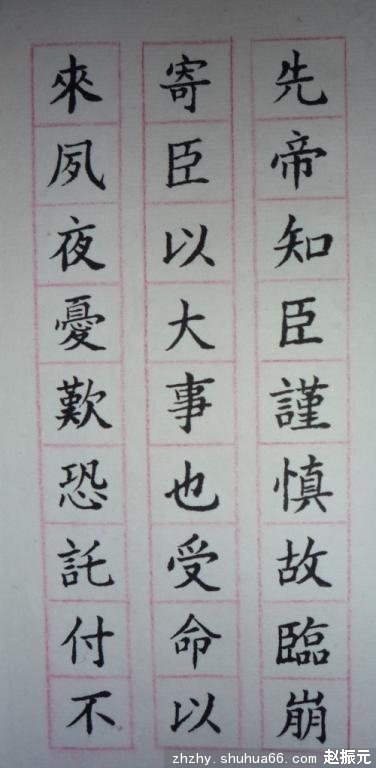 先帝知臣謹慎故臨崩
寄臣以大事也受命以
來夙夜憂歎恐託付不
zhzhy.shuhua66.com 赵振元